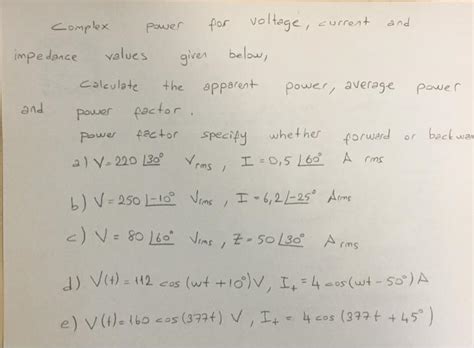 Complex power for voltage, current and
impedance values given below,
Calculate the apparent power, average power
and power factor.
power factor specify whether forward or backwar
a) V=220 ∠30° Vrms, I=0,5 ∠60° A rms
b) V=250 ∠-10° Vrms, I=6,2 ∠-25° Arms
c) V=80 ∠60° Vrms, Z=50 ∠30° Arms
d) V(t)=112 cos(wt+10°)V, I+=4 cos(wt-50°)A
e) V(t)=160 cos(377t) V, I+ = 4 cos(377t+45°)